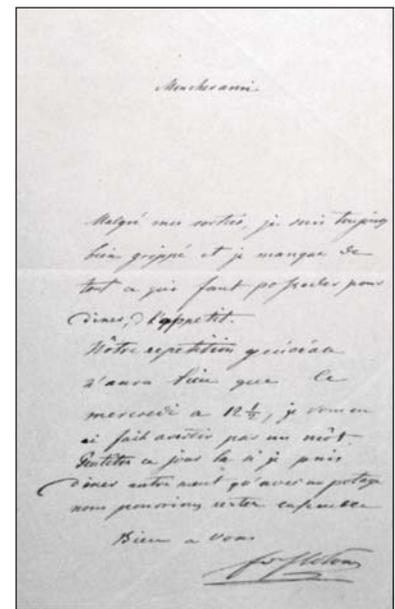 Mon cher ami
Malgré mes sorties, je suis toujours
bien grippé et je manque de
tout ce qu'il faut posseder pour
diner, l'appetit.
Nôtre repetition générale
n'aura lieu que le
mercredi a 12 ½, je vous en
ai fait avertir par un môt.
ce jour la si je puis
diner autrement qu'avec un potage
nous pourrions rester ensemble
Bien a vous